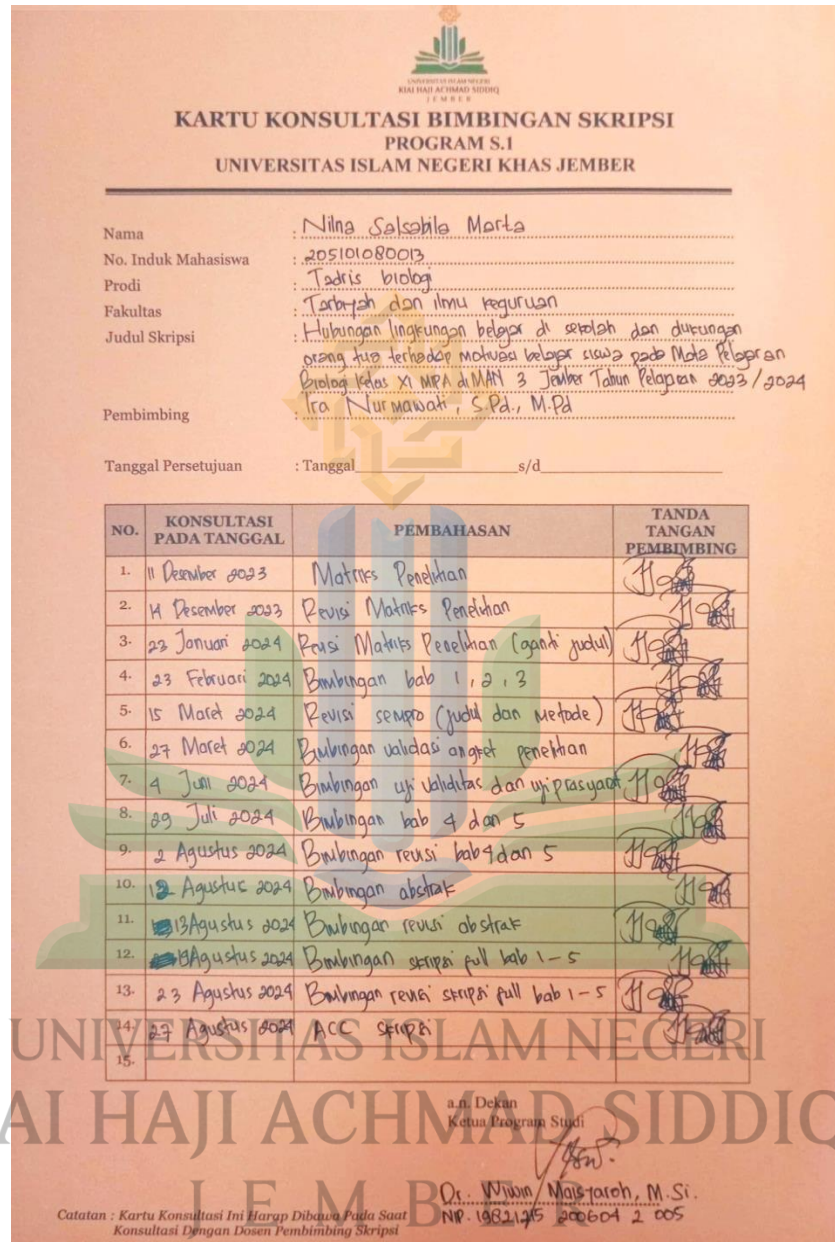 UNIVERSITAS ISLAM NEGERI
KIAI HAJI ACHMAD SIDDIQ
JEMBER
KARTU KONSULTASI BIMBINGAN SKRIPSI
PROGRAM S.1
UNIVERSITAS ISLAM NEGERI KHAS JEMBER
Nama : Nilna Salsabila Marta
No. Induk Mahasiswa : 205101080013
Prodi : Tadris biologi
Fakultas : Tarbiyah dan ilmu keguruan
Judul Skripsi : Hubungan lingkungan belajar di sekolah dan dukungan
orang tua terhadap motivasi belajar siswa pada Mata Pelajaran
Biologi Kelas XI MPA di MAN 3 Jember Tahun Pelajaran 2023/2024
Pembimbing : Ira Nurmawati, S.Pd., M.Pd
Tanggal Persetujuan : Tanggal s/d
NO. KONSULTASI PADA TANGGAL PEMBAHASAN TANDA TANGAN PEMBIMBING
1. 11 Desember 2023 Matriks Penelitian
2. 14 Desember 2023 Revisi Matriks Penelitian
3. 23 Januari 2024 Revisi Matriks Penelitian (ganti judul)
4. 23 Februari 2024 Bimbingan bab 1, 2, 3
5. 15 Maret 2024 Revisi sempro (judul dan metode)
6. 27 Maret 2024 Bimbingan validasi angket penelitian
7. 4 Juni 2024 Bimbingan uji validitas dan uji prasyarat
8. 29 Juli 2024 Bimbingan bab 4 dan 5
9. 2 Agustus 2024 Bimbingan revisi bab 4 dan 5
10. 12 Agustus 2024 Bimbingan abstrak
11. 13 Agustus 2024 Bimbingan revisi abstrak
12. Agustus 2024 Bimbingan skripsi full bab 1-5
13. 23 Agustus 2024 Bimbingan revisi skripsi full bab 1-5
14. 27 Agustus 2024 ACC skripsi
15.
UNIVERSITAS ISLAM NEGERI
KIAI HAJI ACHMAD SIDDIQ
JEMBER
a.n. Dekan
Ketua Program Studi
Dr. Wiwin Maisyaroh, M.Si.
NIP. 19821215 200604 2 005
Catatan : Kartu Konsultasi Ini Harap Dibawa Pada Saat
Konsultasi Dengan Dosen Pembimbing Skripsi